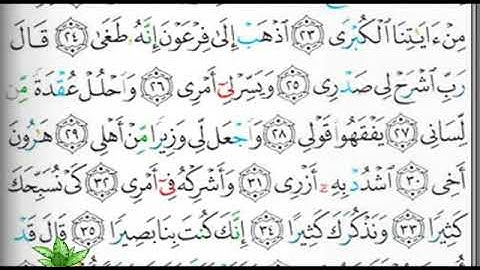 مِنْ ءَايَٰتِنَا الْكُبْرَى ٢٣ اذْهَبْ إِلَىٰ فِرْعَوْنَ إِنَّهُ طَغَىٰ ٢٤ قَالَ
رَبِّ اشْرَحْ لِي صَدْرِي ٢٥ وَيَسِّرْ لِيٓ أَمْرِي ٢٦ وَاحْلُلْ عُقْدَةً مِّن
لِّسَانِي ٢٧ يَفْقَهُوا قَوْلِي ٢٨ وَاجْعَل لِّي وَزِيرًا مِّنْ أَهْلِي ٢٩ هَٰرُونَ
أَخِي ٣٠ اشْدُدْ بِهِ أَزْرِي ٣١ وَأَشْرِكْهُ فِيٓ أَمْرِي ٣٢ كَيْ نُسَبِّحَكَ
كَثِيرًا ٣٣ وَنَذْكُرَكَ كَثِيرًا ٣٤ إِنَّكَ كُنتَ بِنَا بَصِيرًا ٣٥ قَالَ قَدْ